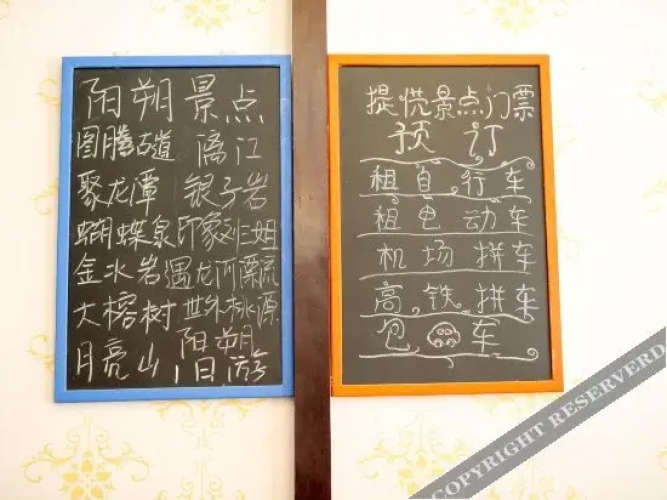 阳朔景点
图腾古道 漓江
聚龙潭 银子岩
蝴蝶泉 印象刘三姐
金水岩 遇龙河漂流
大榕树 世外桃源
月亮山 阳朔
1日游
提供景点门票
预订
租自行车
租电动车
机场拼车
高铁拼车
包车
COPYRIGHT RESERVERD